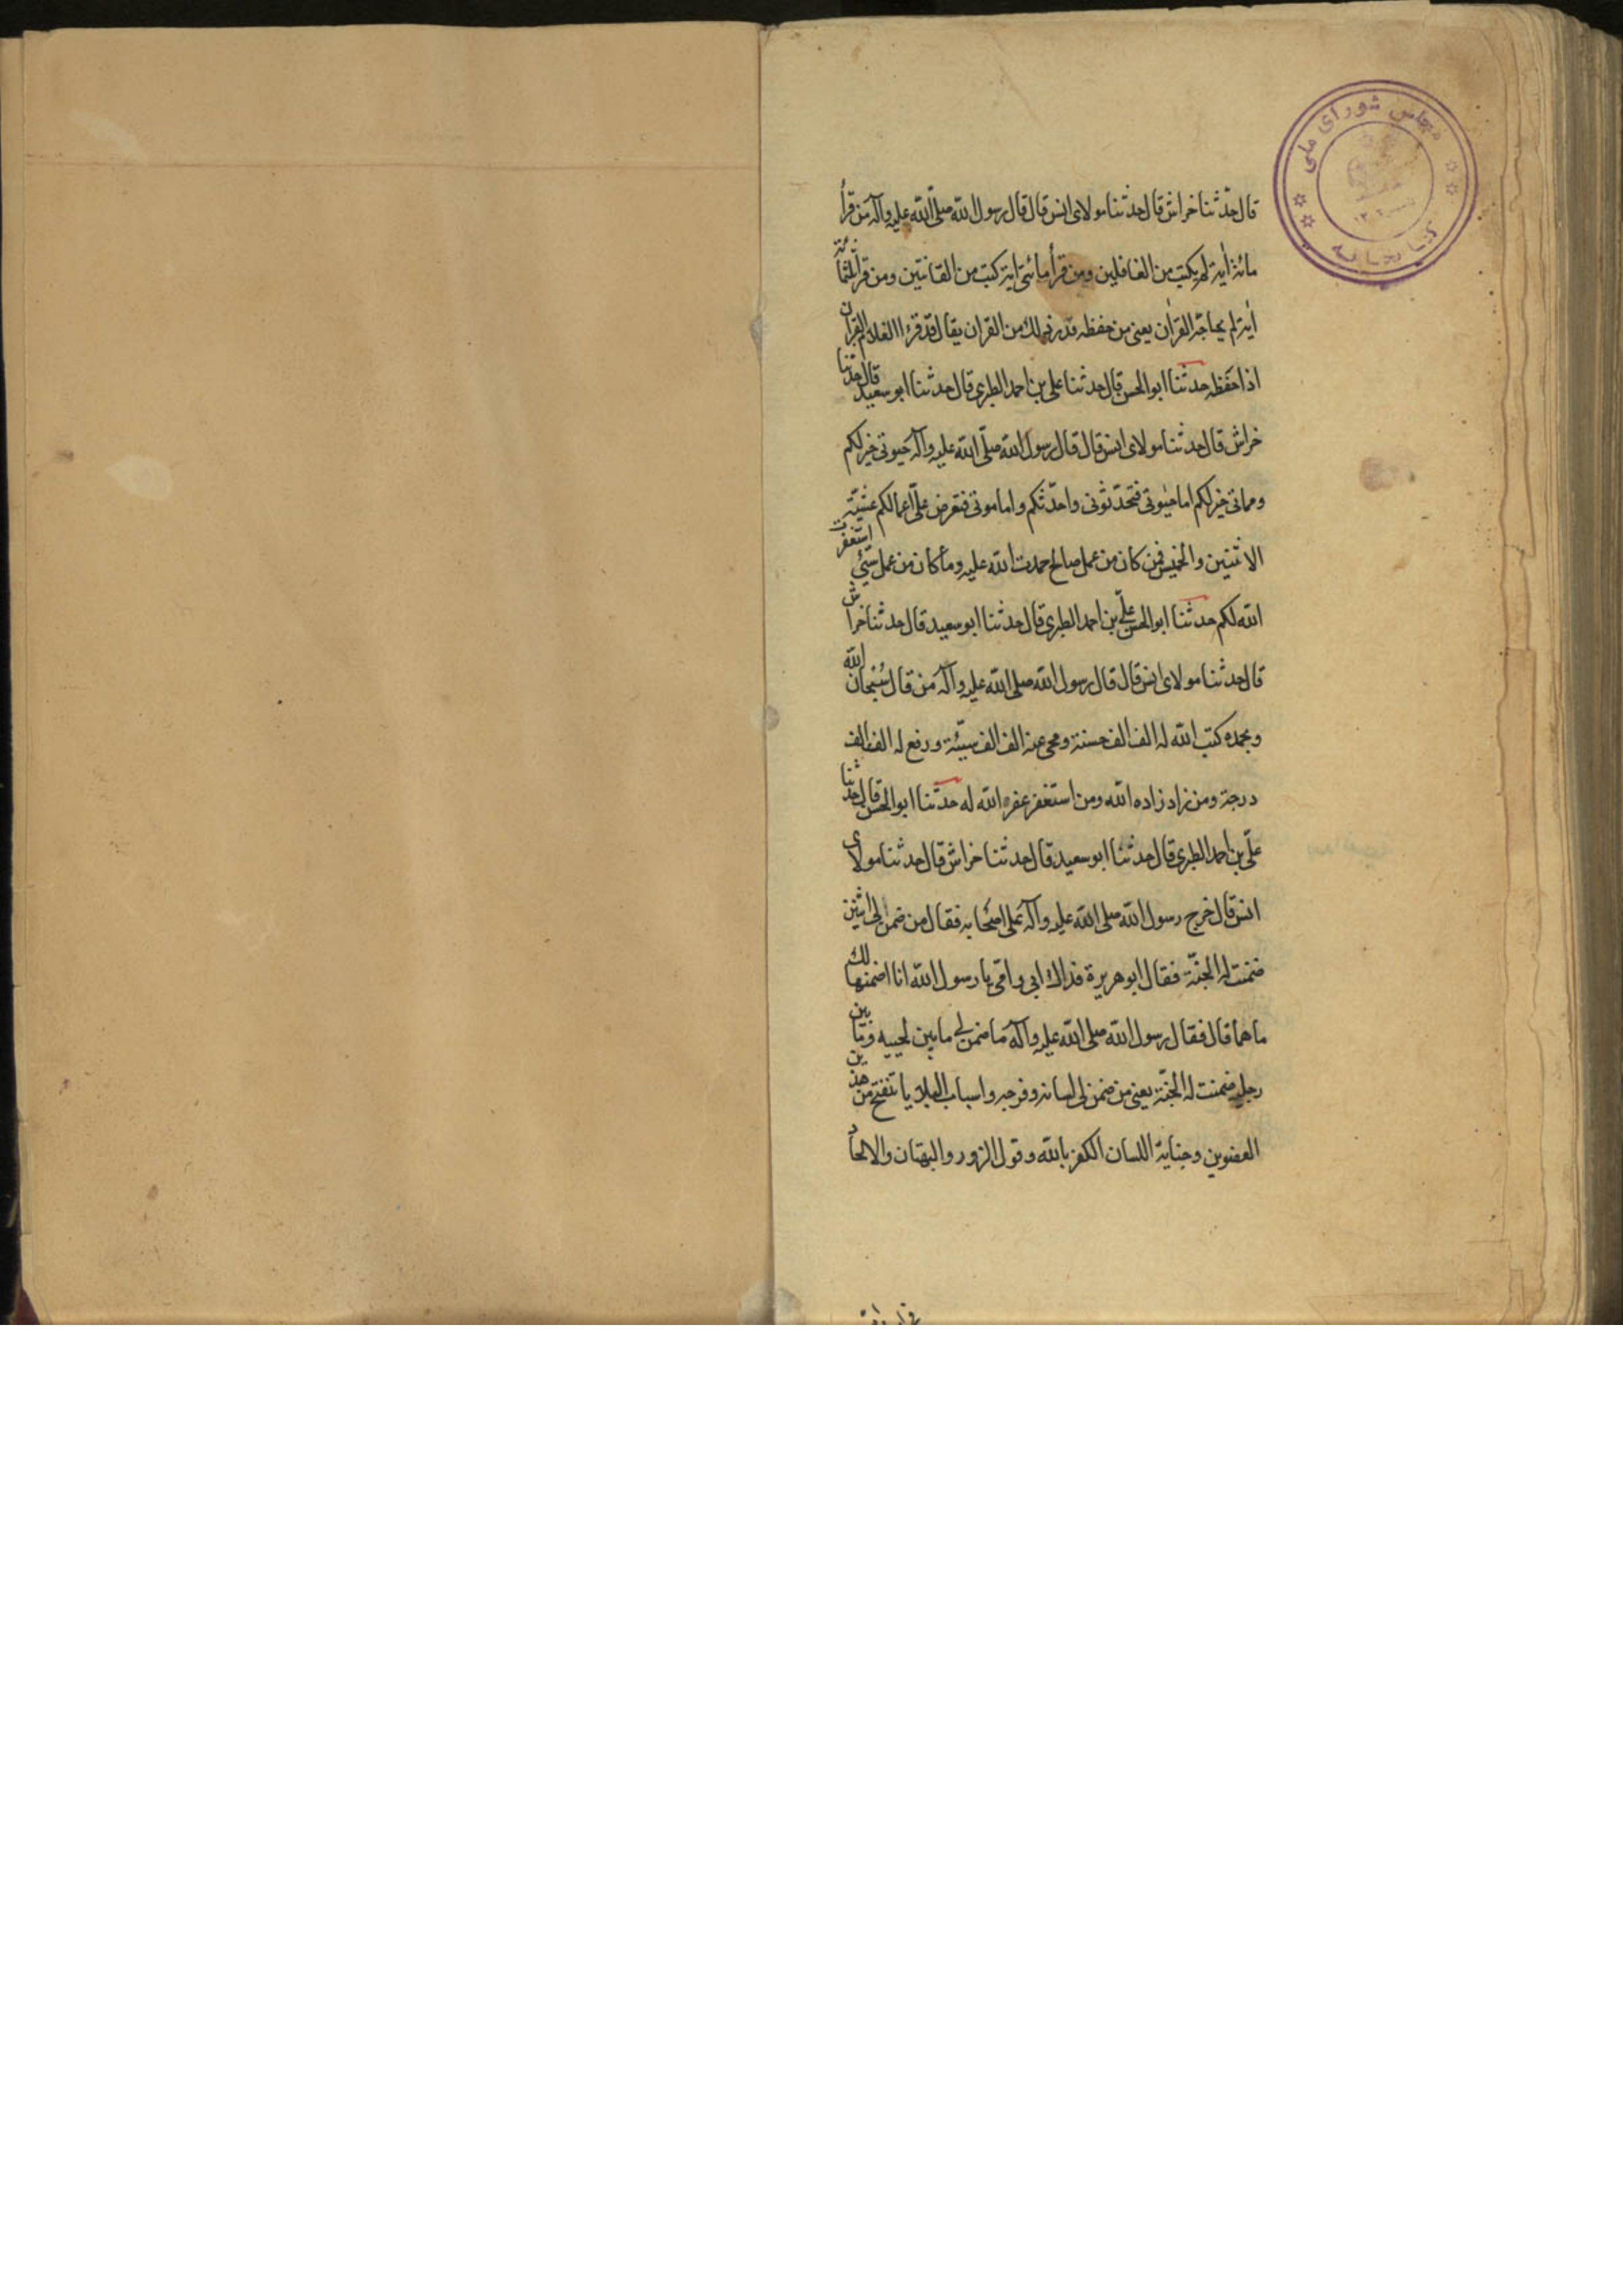 مجلس شورای ملی
کتابخانه
قال حدّثنا خراش قال حدثنا مولای انس قال قال رسول الله صلّی الله علیه وآله من قرأ
مائة اٰیة لم یکتب من الغافلین ومن قرأ مائتی ایة کتب من القانتین ومن قرأ ثلثمائة
اٰیة لم یحاجّه القرٰان یعنی من حفظ قدر ذلك من القران یقال قد قرء الغلام القرٰان
اذا حفظه حدثنا ابو الحسن قال حدثنا علی بن احمد الطبری قال حدثنا ابو سعید قال حدثنا
خراش قال حدثنا مولای انس قال قال رسول الله صلّی الله علیه وآله حیوتی خیر لکم
ومماتی خیر لکم اما حیٰوتی فتحدّثونی واحدّثکم واما موتی فتعرض علیّ اعمالکم عشیّة
الاثنین والخمیس فمن کان من عمل صالح حمدت الله علیه وما کان من عمل سیّئ استغفرت
الله لکم حدثنا ابو الحسن علیّ بن احمد الطبری قال حدثنا ابو سعید قال حدثنا خراش
قال حدثنا مولای انس قال قال رسول الله صلی الله علیه وآله من قال سُبحان الله
وبحمده کتب الله له الف الف حسنة ومحی عنه الف الف سیّئة ورفع له الف الف
درجة ومن زاد زاده الله ومن استغفر غفر الله له حدثنا ابو الحسن قال حدثنا
علیّ بن احمد الطبری قال حدثنا ابو سعید قال حدثنا خراش قال حدثنا مولای
انس قال خرج رسول الله صلی الله علیه وآله علی اصحابه فقال من ضمن لی اثنین
ضمنت له الجنّة فقال ابو هریرة فداك ابی وامّی یا رسول الله انا اضمنها لك
ما هما قال فقال رسول الله صلی الله علیه وآله من ضمن لی ما بین لحییه وما بین
رجلیه ضمنت له الجنّة یعنی من ضمن لی لسانه وفرجه واسباب البلایا تنفتح من هذین
العضوین وجنایة اللسان الکفر بالله وقول الزور والبهتان والالحاد